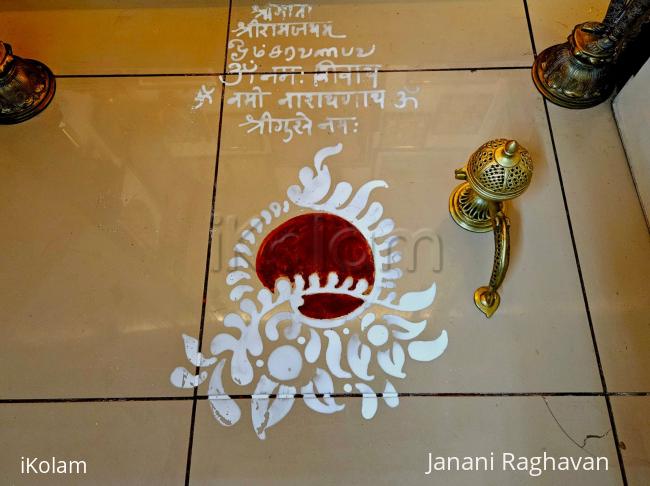 श्रीमाता
श्रीरामजयम
ஓம் சரவணபவ
ॐ नमः शिवाय
ॐ नमो नारायणाय ॐ
श्रीगुरवे नमः
iKolam
iKolam
Janani Raghavan